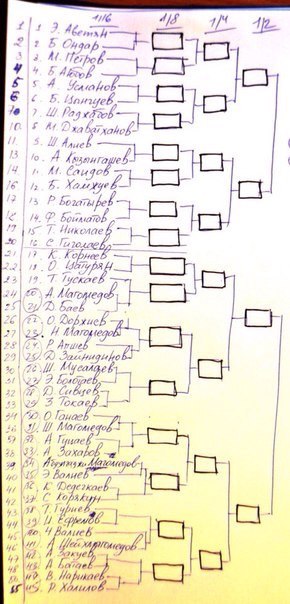 1/16 1/8 1/4 1/2
1 1. Э. Аветян
2 2. Б. Ондар
3 3. М. Петров
4 4. Б. Аютов
5 5 А. Усманов
6 6. Б.
7. Ш. Раджабов
8 М. Джаватханов
11 9. Ш Алиев
13 10. А Кызонгашев
14 11. М. Саидов
16 12. Б. Хамхуев
12 13 Р Богатырев
14. Ф. Бойматов
15 Т. Николаев
16 С. Гиголаев
21 17 К. Корнеев
22 18. О. Цатурян
23 19. Т. Тускаев
24 20 А. Магомедов
25 21 Д. Баев
26 22 О. Доржиев
27 23 Н Магомедов
28 24 Р. Аршев
29 25 Д. Зайнидинов
30 26 Ш. Мусалаев
31 27 Э. Болотаев
32 28 Д. Сивцев
33 29 З. Токаев
30 О. Ганаев
36 31 Ш. Магомедов
37 32 А. Гунаев
38 33 А. Захаров
39 34. Магомедов
40 35 Э. Валиев
36 К. Дедегкаев
37 С. Корякин
43 38 Т. Гуриев
44 39 И. Ефремов
45 40 Ч. Валиев
46 41 А Шейхмагомедов
47 42 А. Закуев
48 43 А. Батаев
В. Нарикаев
Р. Халилов